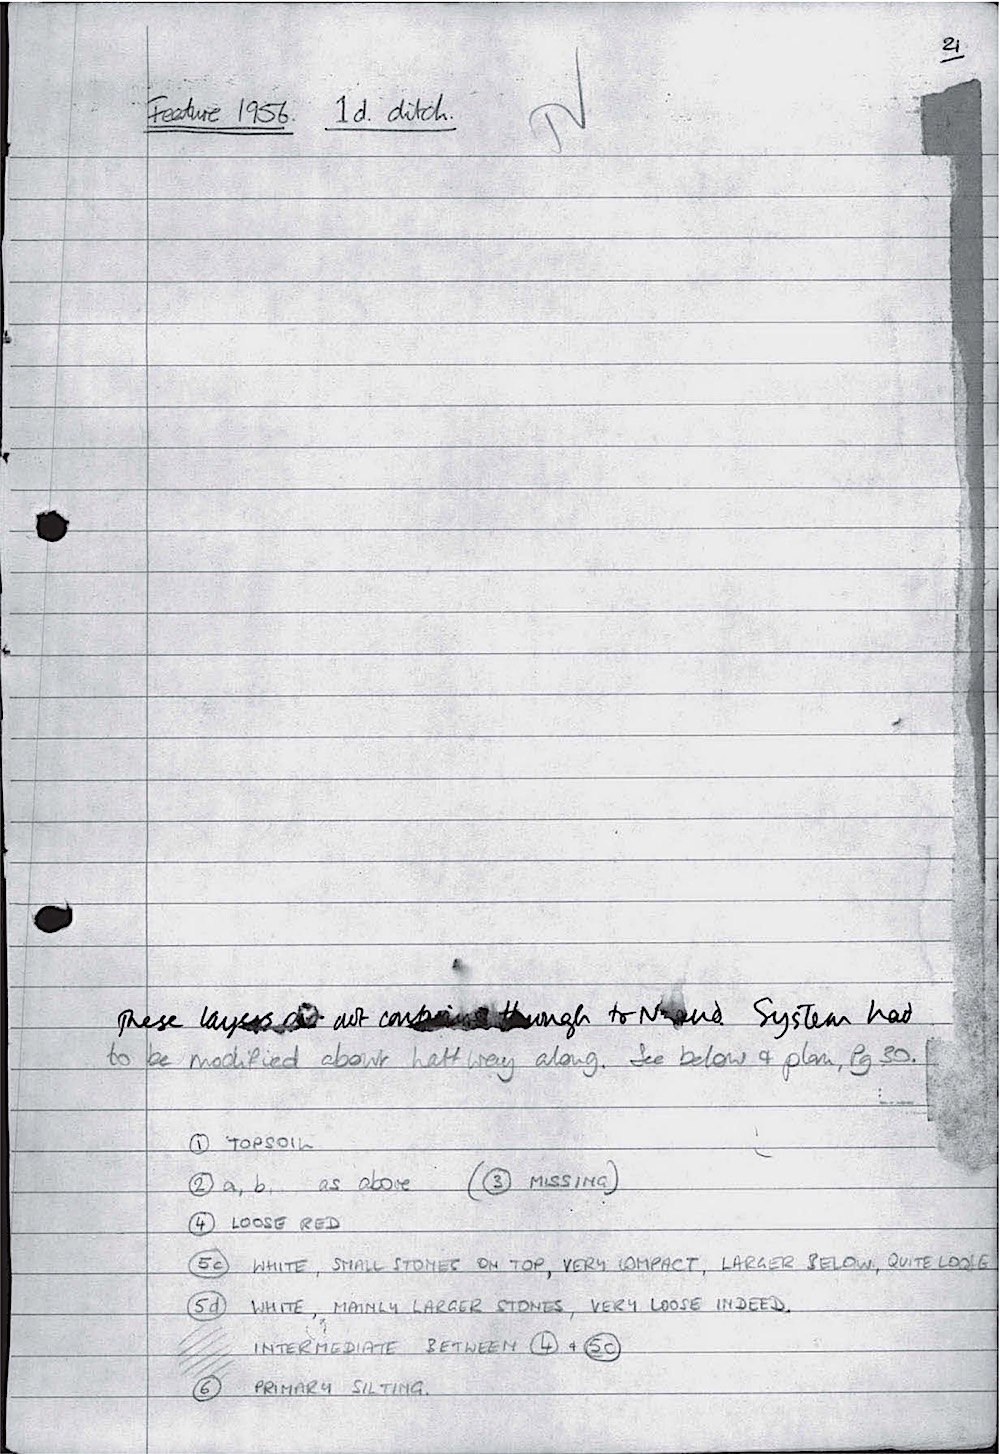 21
Feature 1956. 1d. ditch.
These layers did not continue through to N end. System had
to be modified about half way along. See below & plan, Pg 30.
① TOPSOIL
② a, b, as above (③ MISSING)
④ LOOSE RED
5c WHITE, SMALL STONES ON TOP, VERY COMPACT, LARGER BELOW, QUITE LOOSE
5d WHITE, MAINLY LARGER STONES, VERY LOOSE INDEED.
INTERMEDIATE BETWEEN ④ + 5c
⑥ PRIMARY SILTING.